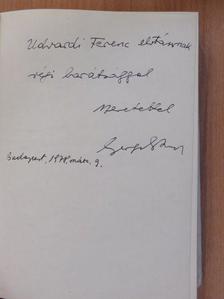 Udvardi Ferenc elvtársnak
régi barátsággal
szeretettel
Budapest, 1978. márc. 9.